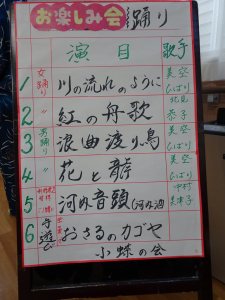 お楽しみ会 踊り
演目 歌手
1 女踊り 川の流れのように 美空ひばり
2 〃 紅の舟歌 北見恭子
3 男踊り 浪曲渡り鳥 美空ひばり
4 〃 花と龍 美空ひばり
5 河内音頭(河内酒 中村美津子
6 手遊び おさるのカゴヤ
小蝶の会